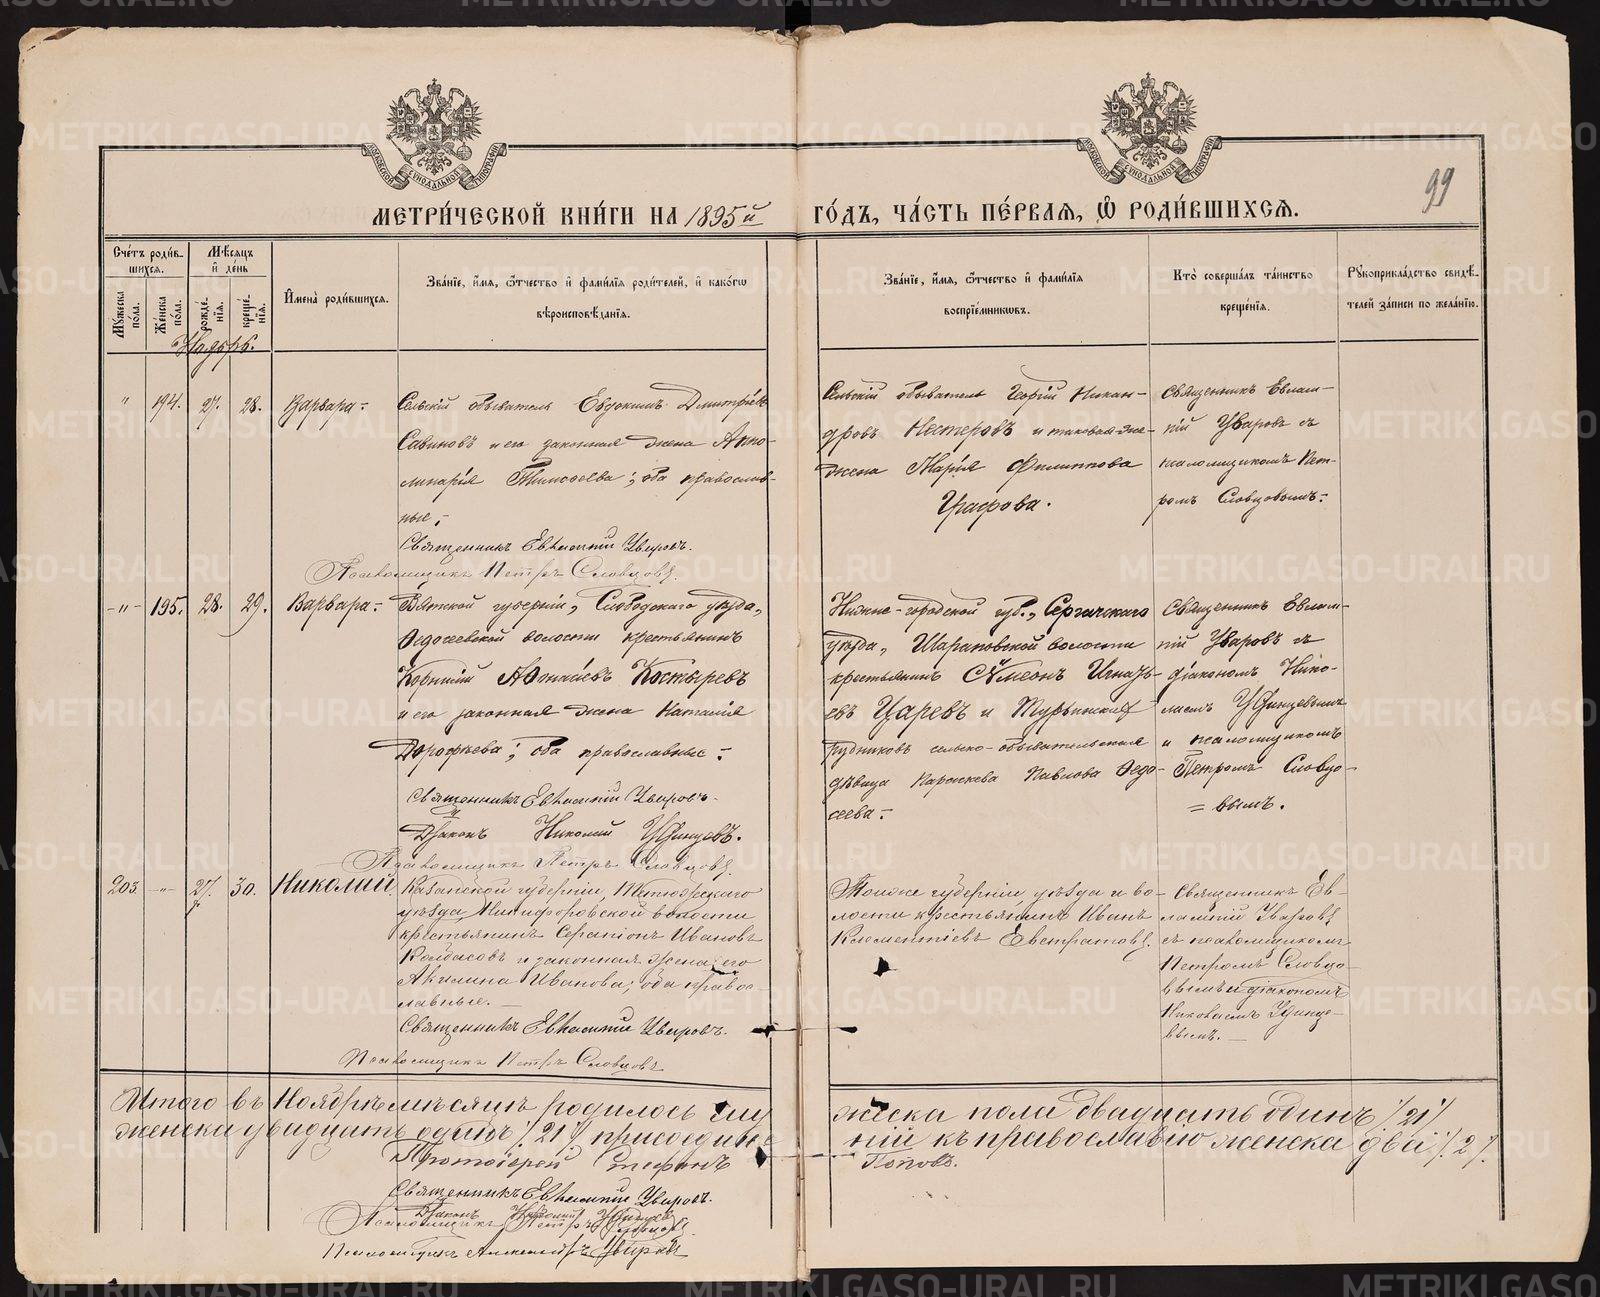 99
МЕТРИ́ЧЕСКОЙ КНИ́ГИ НА 1895й ГО́ДЪ, ЧА́СТЬ ПЕ́РВАЯ, Ѡ РОДИ́ВШИХСЯ.
Сче́тъ роди́вшихся.
Му́жеска по́ла.
Же́нска по́ла.
Мѣ́сяцъ и де́нь
рожде́нія.
креще́нія.
Имена̀ роди́вшихся.
Зва́ніе, и́мя, ѻ́тчество и фами́лія роди́телей, и како́гѡ
вѣроисповѣ́данія.
Зва́ніе, и́мя, ѻ́тчество и фами́лія
воспріе́мникωвъ.
Кто̀ соверша́лъ та́инство
креще́нія.
Рꙋкоприкла́дство свидѣ́-
телей за́писи по жела́нію.
Ноябрь.
" 194. 27. 28. Варвара
Сельскій обыватель Евдокимъ Дмитріевъ
Савиновъ и его законная жена Апо-
линарія Тимофеева; оба православ-
ные.
Священникъ Евлампій Уваровъ.
Псаломщикъ Петръ Словцовъ.
Сельскій обыватель Георгій Никан-
дровъ Нестеровъ и таковая-же
жена Марія Филиппова
Графова.
Священникъ Евлам-
пій Уваровъ съ
псаломщикомъ Пет-
ромъ Словцовымъ.
-"- 195. 28. 29. Варвара
Вятской губерніи, Слободскаго уѣзда,
Ѳедосеевской волости крестьянинъ
Корнилій Аѳонасіевъ Костыревъ
и его законная жена Наталія
Дороѳѣева; оба православные.
Священникъ Евлампій Уваровъ.
Діаконъ Николай Удинцовъ.
Псаломщикъ Петръ Словцовъ.
Нижне-городской губ., Сергачскаго
уѣзда, Шараповской волости
крестьянинъ Сѵмеонъ Игнать-
евъ Царевъ и Турьинскихъ
рудниковъ сельско-обывательская
дѣвица Параскева Павлова Ѳедо-
сеева.
Священникъ Евлам-
пій Уваровъ съ
діакономъ Нико-
лаемъ Удинцевымъ
и псаломщикомъ
Петромъ Словцо-
вымъ.
203. -"- 27. 30. Николай
Казанской губерніи, Тетюжскаго
уѣзда, Никифоровской волости
крестьянинъ Серапіонъ Ивановъ
Колбасовъ и законная жена его
Акилина Иванова; оба право-
славные.
Священникъ Евлампій Уваровъ.
Псаломщикъ Петръ Словцовъ
Тойже губерніи, уѣзда и во-
лости крестьянинъ Иванъ
Клементіевъ Евстратовъ.
Священникъ Ев-
лампій Уваровъ
съ псаломщикомъ
Петромъ Словцо-
вымъ и діакономъ
Николаемъ Удинце-
вымъ.
Итого въ Ноябрѣ мѣсяцѣ родилось мужеска пола двадцать одинъ /21/
женска двадцать одинъ /21/ присоединеній къ православію женска двѣ /2/.
Протоіерей Стефанъ Поповъ.
Священникъ Евлампій Уваровъ.
Діаконъ Николай Удинцовъ
Псаломщикъ Петръ Словцовъ
Псаломщикъ Александръ Уваровъ